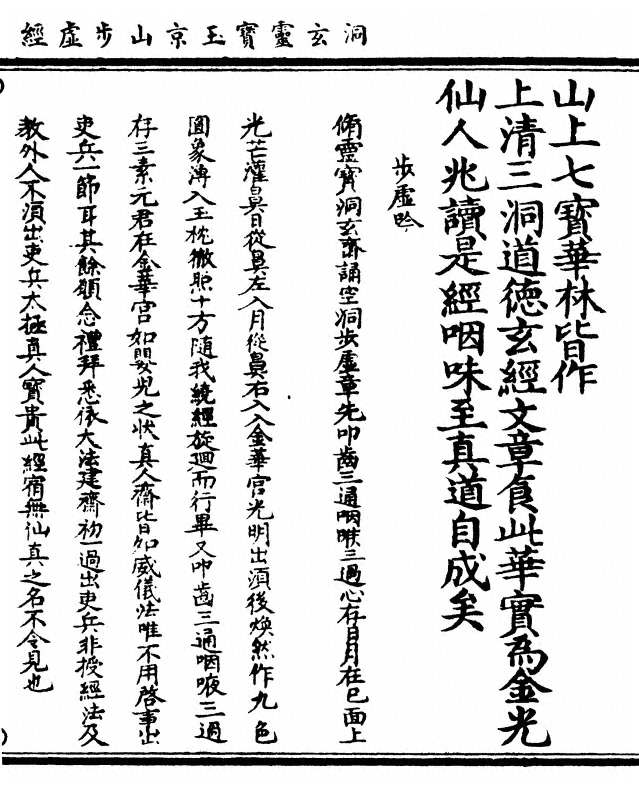 洞玄靈寶玉京山步虛經
山上七寶華林皆作
上清三洞道德玄經文章食此華實為金光
仙人兆讀是經咽味至真道自成矣
步虛吟
脩靈寶洞玄齋誦空洞步虛章先叩齒三通咽喉三過心存日月在己面上
光芒灌鼻日從鼻左入月從鼻右入入金華宮光明出頂後煥然作九色
圓象薄入玉枕徹照十方隨我繞經旋迴而行畢又叩齒三通咽液三過
存三素元君在金華宮如嬰兒之狀真人齋皆如威儀法唯不用啓事出
吏兵一節耳其餘願念禮拜悉依大法建齋初一過出吏兵非授經法及
教外人不須出吏兵太極真人寶貴此經宿無仙真之名不令見也